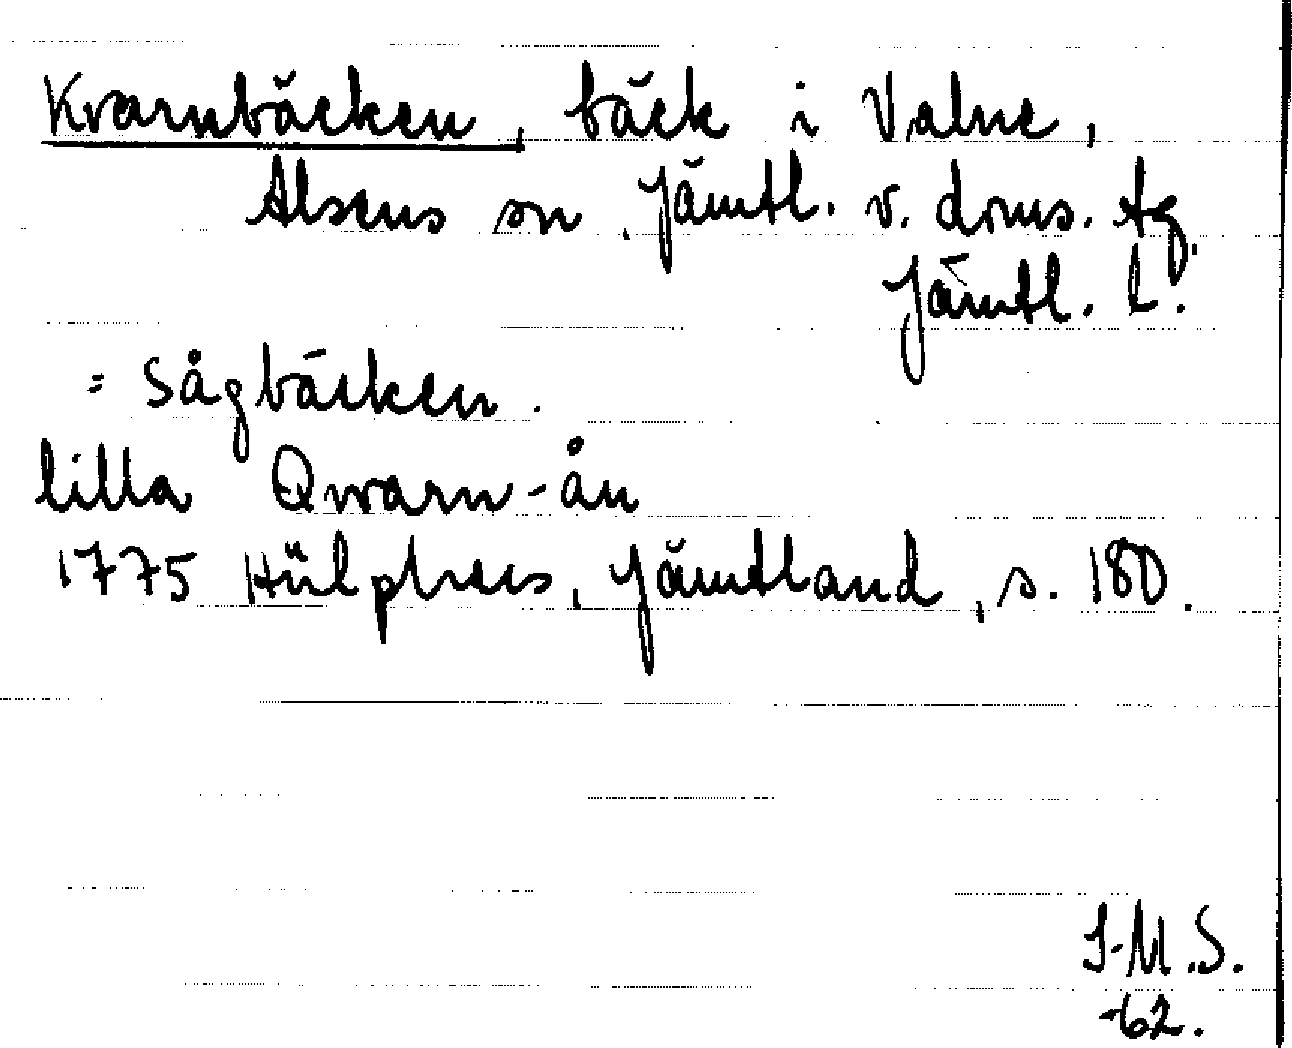 Kvarnbäcken, bäck i Valne,
Alsens sn, Jämtl. v. doms. tg,
Jämtl. l.
= Sågbäcken.
lilla Qwarn-ån
1775 Hülphers, Jämtland, s. 180.
I-M.S.
-62.